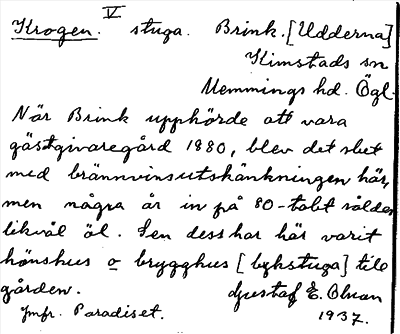 Krogen. V stuga. Brink. [Udderna]
Kimstads sn
Memmings hd. Ögl.
När Brink upphörde att vara
gästgivaregård 1880, blev det slut
med brännvinsutskänkningen här,
men några år in på 80-talet såldes
likväl öl. Sen dess har här varit
hönshus o brygghus [bykstuga] till
gården. Gustaf E. Olsson
Jmfr. Paradiset. 1937.